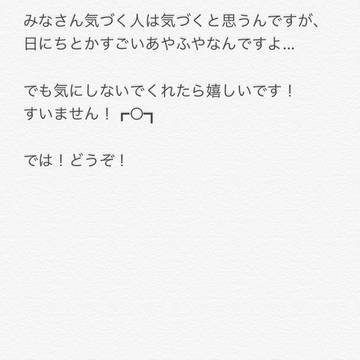 みなさん気づく人は気づくと思うんですが、
日にちとかすごいあやふやなんですよ...
でも気にしないでくれたら嬉しいです！
すいません！┏○┓
では！どうぞ！